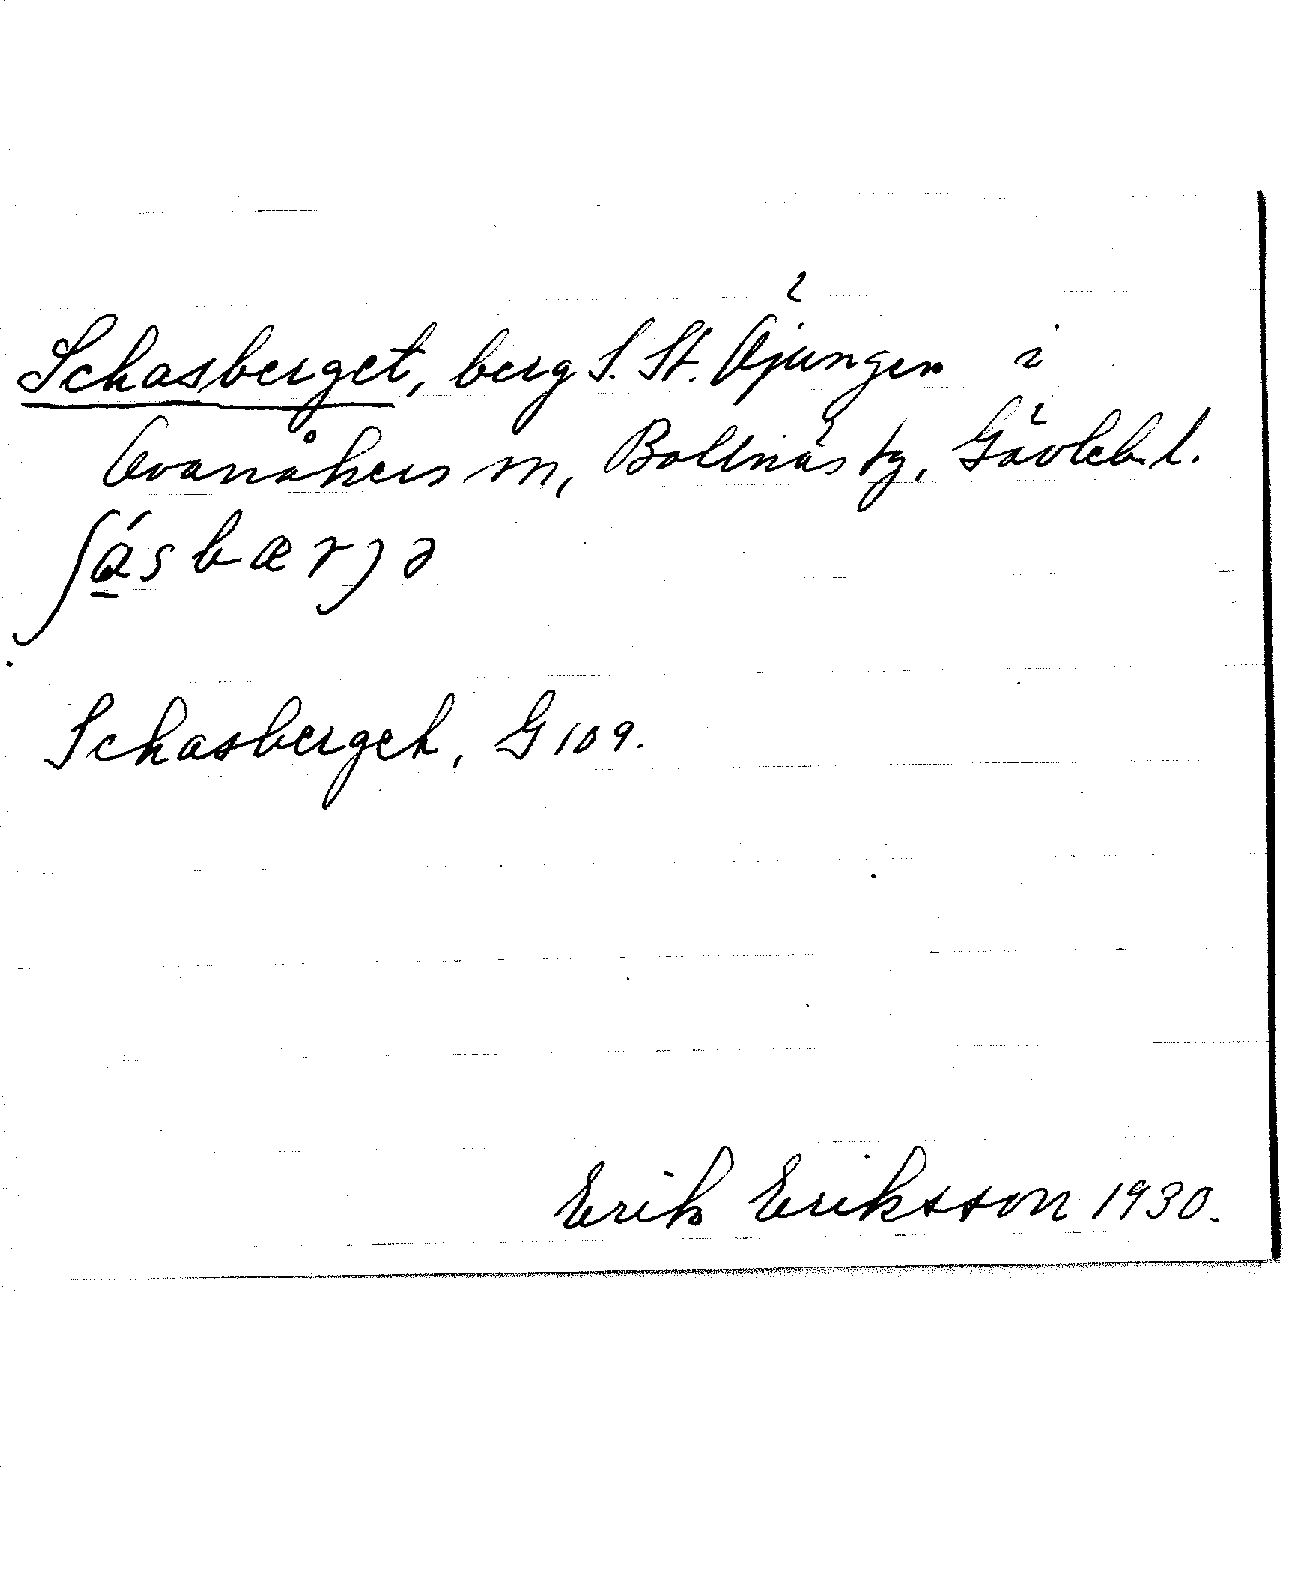 Schasberget, berg S. St. Öjungen i
Ovanåkers sn, Bollnäs tg, Gävleb. l.
ʃásbærjə
Schasberget, G 109.
Erik Eriksson 1930.